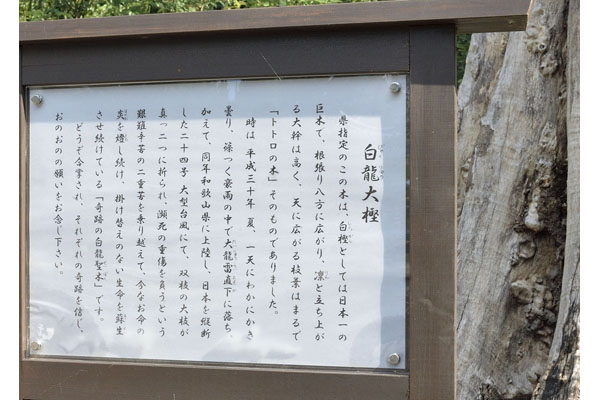 白龍大樫
県指定のこの木は、白樫としては日本一の
巨木で、根張り八方に広がり、凛と立ち上が
る大幹は高く、天に広がる枝葉はまるで
「トトロの木」そのものでありました。
時は平成三十年夏、一天にわかにかき
曇り、篠つく豪雨の中で大龍雷直下に落ち、
加えて、同年和歌山県に上陸し、日本を縦断
した二十四号大型台風にて、双枝の大枝が
真っ二つに折られ、瀕死の重傷を負うという
艱難辛苦の二重苦を乗り越えて、今なお命の
炎を燈し続け、掛け替えのない生命を蘇生
させ続けている「奇跡の白龍聖木」です。
どうぞ合掌され、それぞれの奇跡を信じ、
おのおのの願いをお念じ下さい。